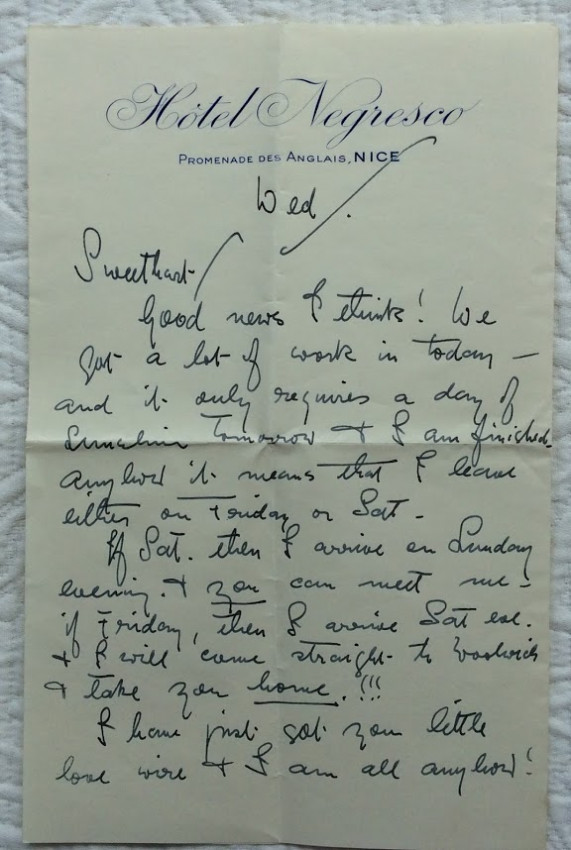 Hôtel Negresco
PROMENADE DES ANGLAIS, NICE
Wed.
Sweetheart
Good news I think! We
got a lot of work in today —
and it only requires a day of
sunshine tomorrow + I am finished.
anyhow it means that I leave
either on Friday or Sat -
If Sat. then I arrive on Sunday
evening. + you can meet me -
if Friday, then I arrive Sat eve.
+ I will come straight to Woolwich
+ take you home.!!!
I have just got your little
love wire + I am all anyhow!